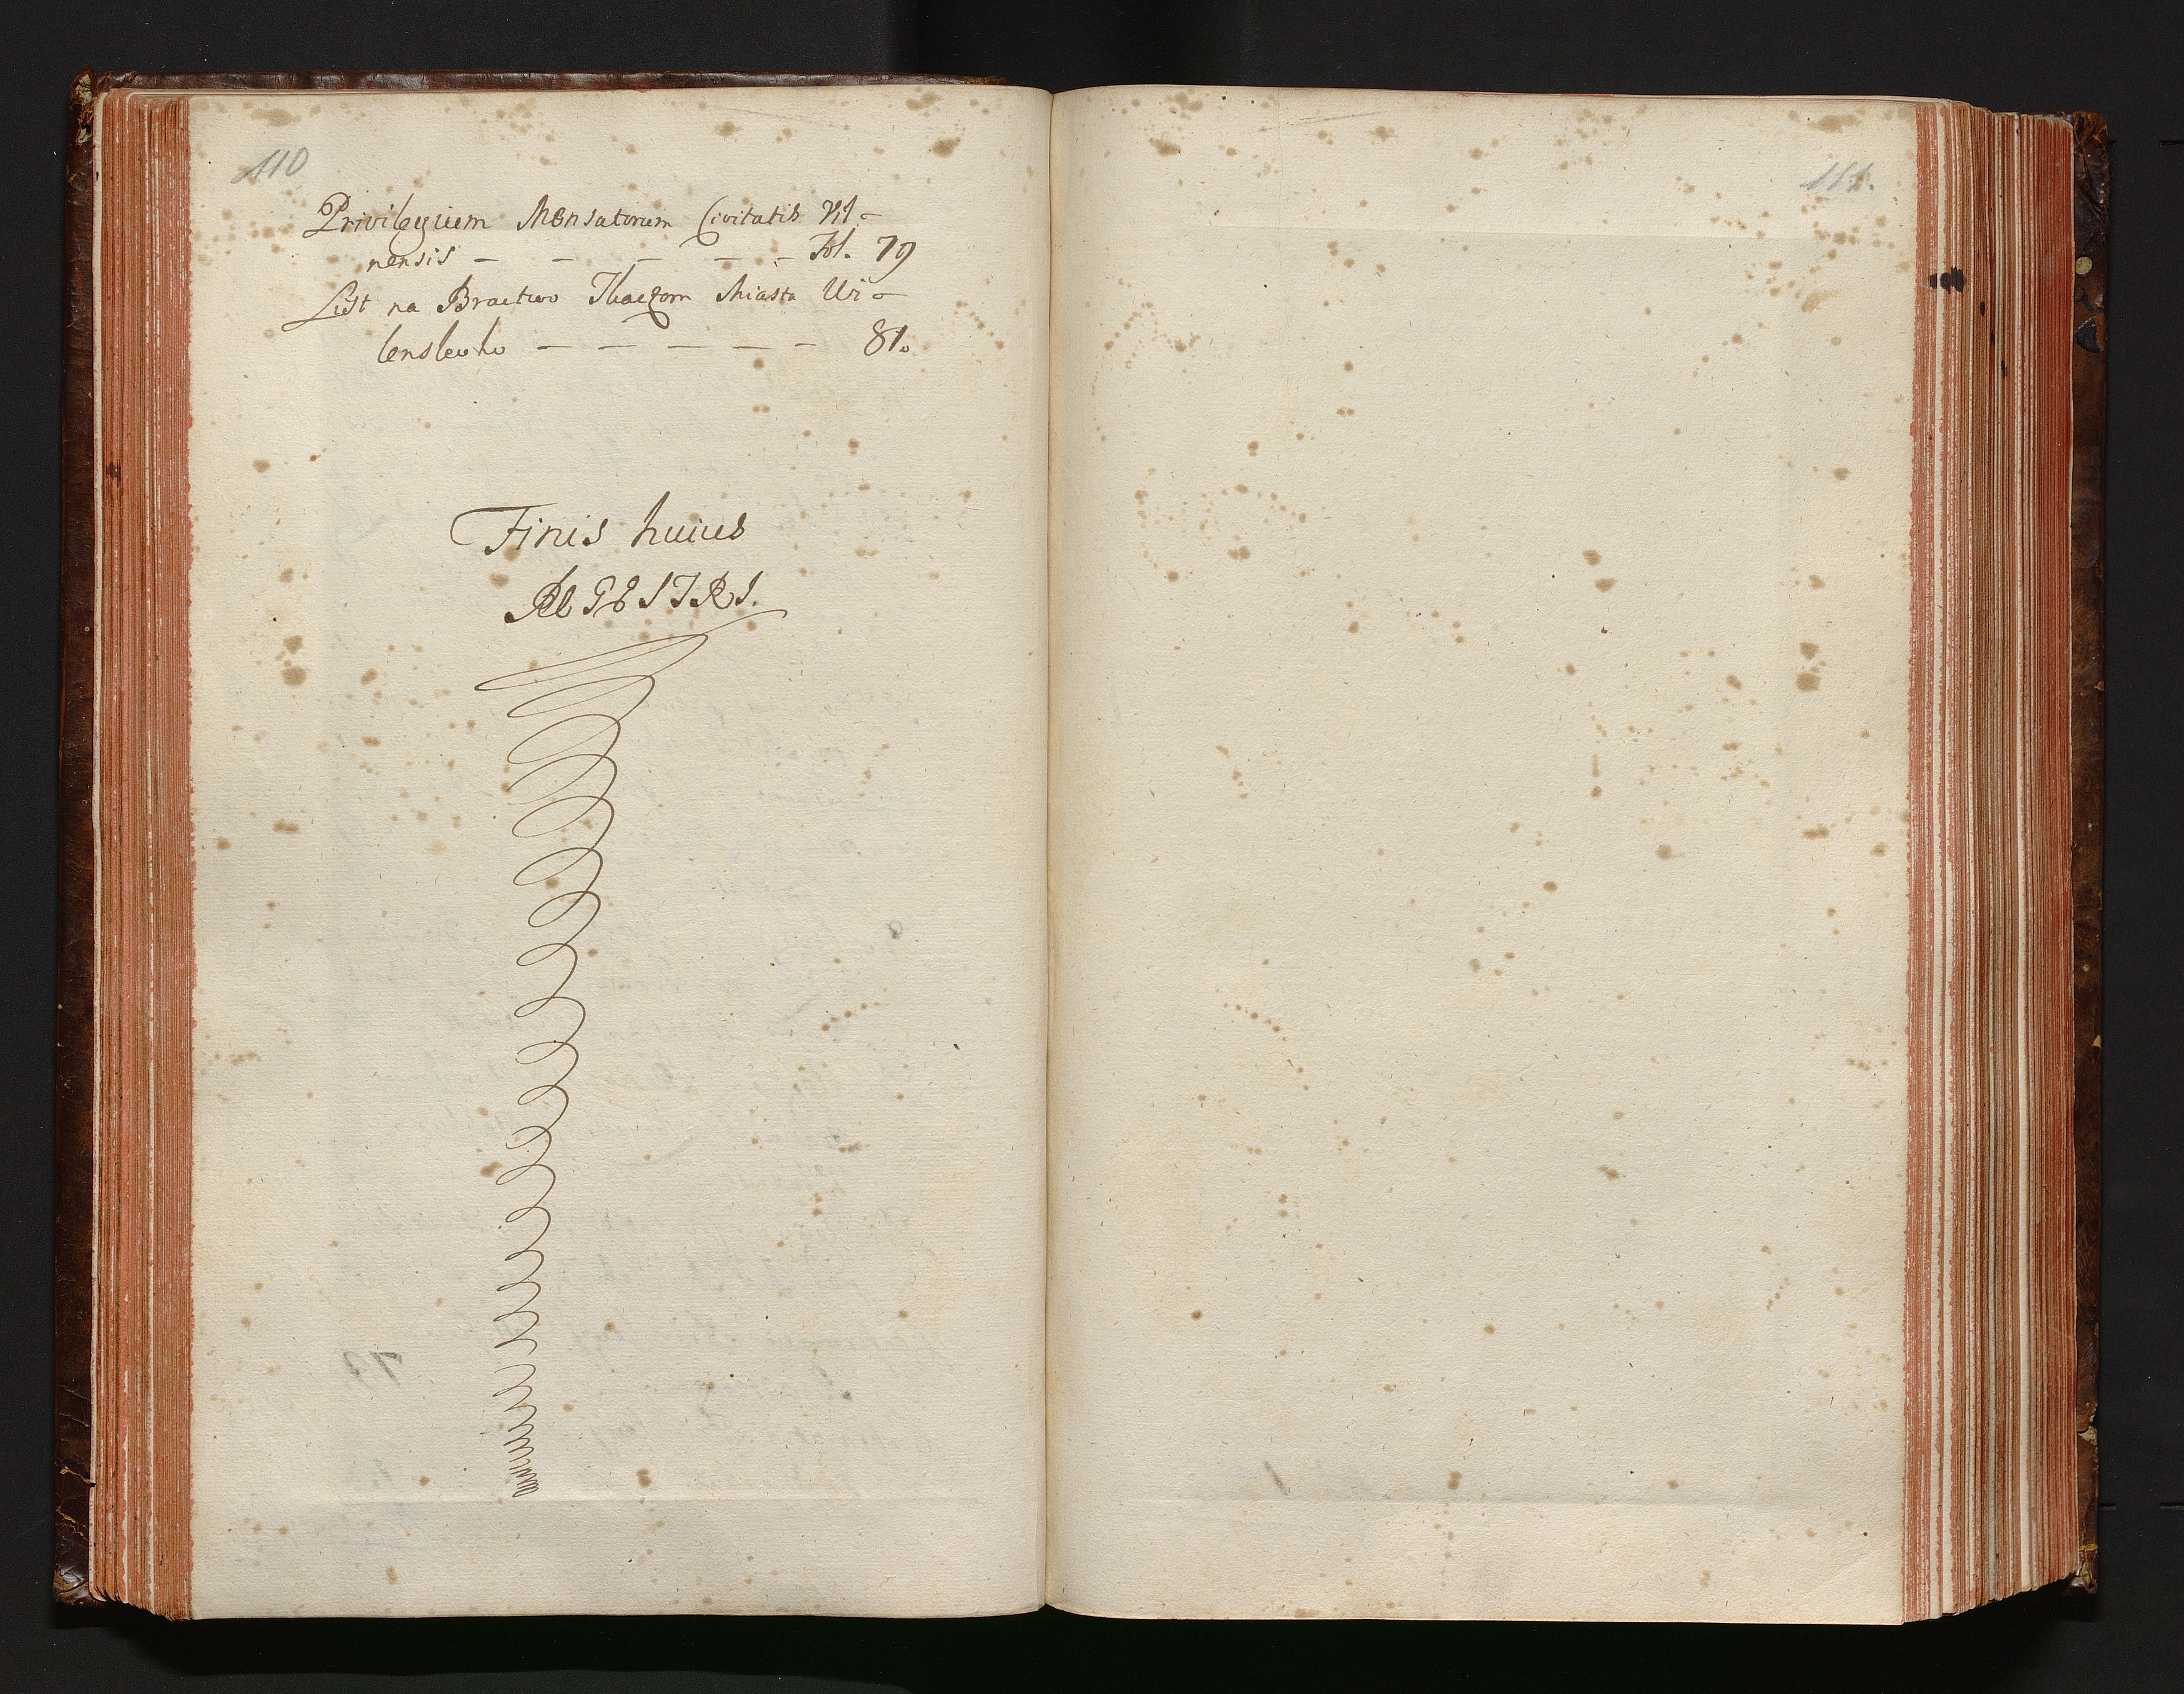 110
Privilegium Mensatorum Civitatis Vil-
nensis - - - - - Fol. 79
List na Bractwo Tkaczom Miasta Wi-
lenskoho - - - - - 81.
Finis huius
REGESTRI.
111.